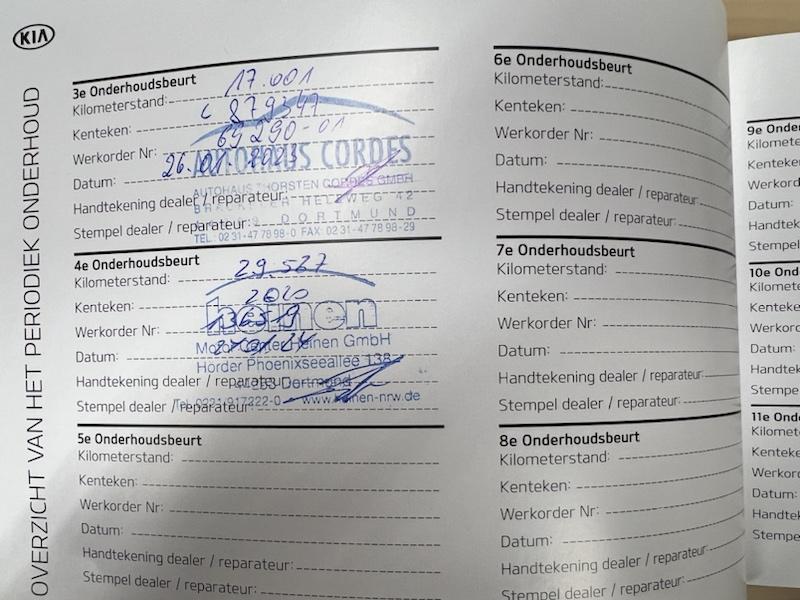 KIA
OVERZICHT VAN HET PERIODIEK ONDERHOUD
3e Onderhoudsbeurt
Kilometerstand: 17.001
Kenteken: 879347
Werkorder Nr: 69290-01
Datum: 26.
AUTOHAUS CORDES
AUTOHAUS THORSTEN CORDES GMBH
Handtekening dealer / reparateur:
HELLWEG 42
DORTMUND
Stempel dealer / reparateur:
TEL: 02 31-47 78 98-0 FAX: 02 31-47 78 98-29
4e Onderhoudsbeurt
Kilometerstand: 29.527
Kenteken: 2020
Werkorder Nr:
heinen
Motor Center Heinen GmbH
Datum:
Hörder Phoenixseeallee 138
Handtekening dealer / reparateur:
44263 Dortmund
Stempel dealer / reparateur:
www.heinen-nrw.de
5e Onderhoudsbeurt
Kilometerstand:
Kenteken:
Werkorder Nr:
Datum:
Handtekening dealer / reparateur:
Stempel dealer / reparateur:
6e Onderhoudsbeurt
Kilometerstand:
Kenteken:
Werkorder Nr:
Datum:
Handtekening dealer / reparateur:
Stempel dealer / reparateur:
7e Onderhoudsbeurt
Kilometerstand:
Kenteken:
Werkorder Nr:
Datum:
Handtekening dealer / reparateur:
Stempel dealer / reparateur:
8e Onderhoudsbeurt
Kilometerstand:
Kenteken:
Werkorder Nr:
Datum:
Handtekening dealer / reparateur:
Stempel dealer / reparateur:
9e Onder
Kilomete
Kenteke
Werkord
Datum:
Handtek
Stempel
10e Ond
Kilomete
Kenteke
Werkord
Datum:
Handtek
Stempe
11e Ond
Kilomet
Kenteke
Werkor
Datum:
Handte
Stempe